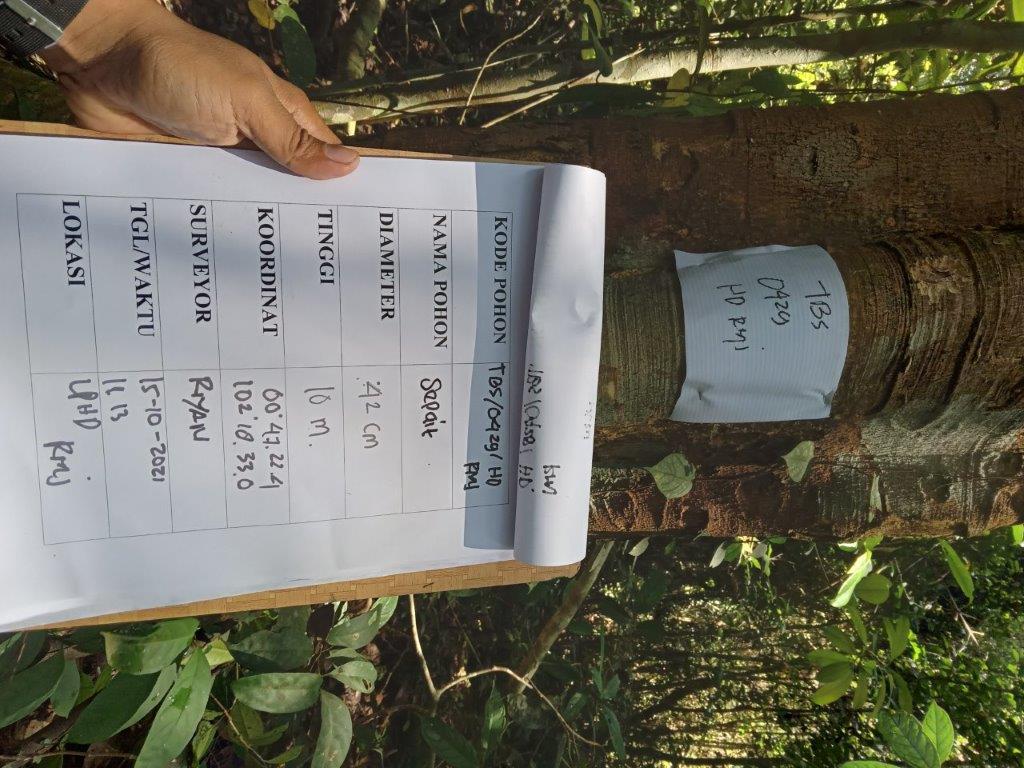 TBS
0429
HD RMJ
KODE POHON TBS/0429/ HD
RMJ
NAMA POHON Sepait
DIAMETER 42 cm
TINGGI 10 m.
KOORDINAT 00°47.22.4
102°10.33.0
SURVEYOR RIYAN
TGL/WAKTU 15-10-2021
11 13
LOKASI LPHD
RMJ